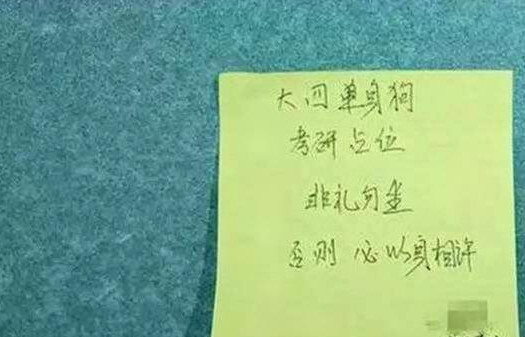 大四单身狗
考研占位
非礼勿坐
否则必以身相许